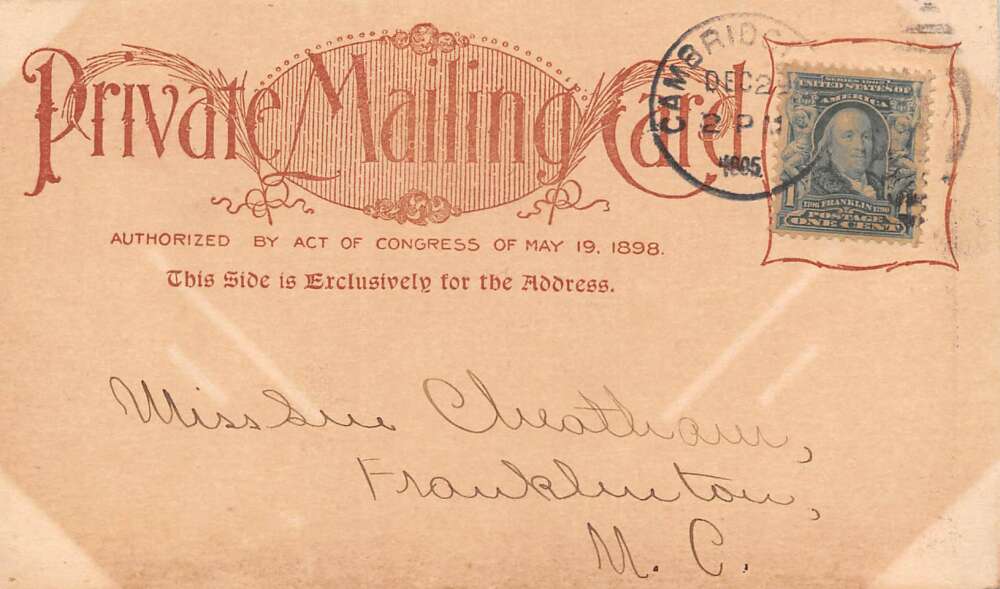 Private Mailing Card
AUTHORIZED BY ACT OF CONGRESS OF MAY 19, 1898.
This Side is Exclusively for the Address.
CAMBRIDG
DEC 2
2 P M
1905
SERIES 1902
UNITED STATES OF
AMERICA
1706 FRANKLIN 1790
1 POSTAGE
ONE CENT
Miss Sue Cheatham,
Franklinton,
N. C.